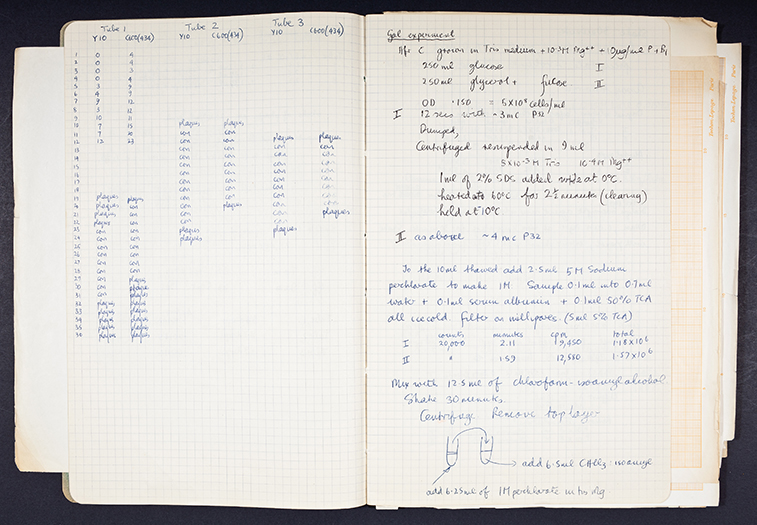 Tube 1 Tube 2 Tube 3
Y10 C600(434) Y10 C600(434) Y10 C600(434)
1 0 4
2 0 4
3 0 3
4 0 4
5 3 9
6 4 9
7 9 12
8 3 11
9 10 11
10 7 15 plaques plaques
11 7 10 con con
12 12 23 con con plaques plaques
con con con con
con con con con
con con con con
con con con con
con con con con
con con con con
19 plaques plaques con con con con
plaques con con plaques con con
21 plaques con con con plaques
22 plaques con con con
23 con con plaques plaques
24 con con plaques
25 con con
26 con con
27 con con
28 con con
29 con plaques
30 con plaques
31 con plaques
32 plaques plaques
33 plaques plaques
34 plaques plaques
35 plaques plaques
36 plaques plaques
Gal experiment
Hfr C grown in Tris medium + 10⁻³M Mg⁺⁺ + 10µg/ml P + B₁
250 ml glucose I
250 ml glycerol + fucose II
OD .150 = 5×10⁸ cells/ml
I 12 secs with ~3 mc P32
Dumped,
Centrifuged resuspended in 9 ml
5×10⁻³M Tris 10⁻⁴M Mg⁺⁺
1 ml of 2% SDS added at 0°C.
heated to 60°C for 2½ minutes (clearing)
held at 10°C
II as above ~ 4 mc P32
To the 10ml thawed add 2.5ml 5M Sodium
perchlorate to make 1M Sample 0.1ml into 0.7ml
water + 0.1ml serum albumin + 0.1ml 50% TCA
all ice cold filter on millipores. (5ml 5% TCA)
counts minutes cpm total
I 20,000 2.11 9,450 1.18×10⁶
II " 1.59 12,580 1.57×10⁶
Mix with 12.5 ml of chloroform-isoamyl alcohol.
Shake 30 minutes.
Centrifuge Remove top layer
add 6.5ml CHCl₃ : isoamyl
add 6.25ml of 1M perchlorate in tris Mg